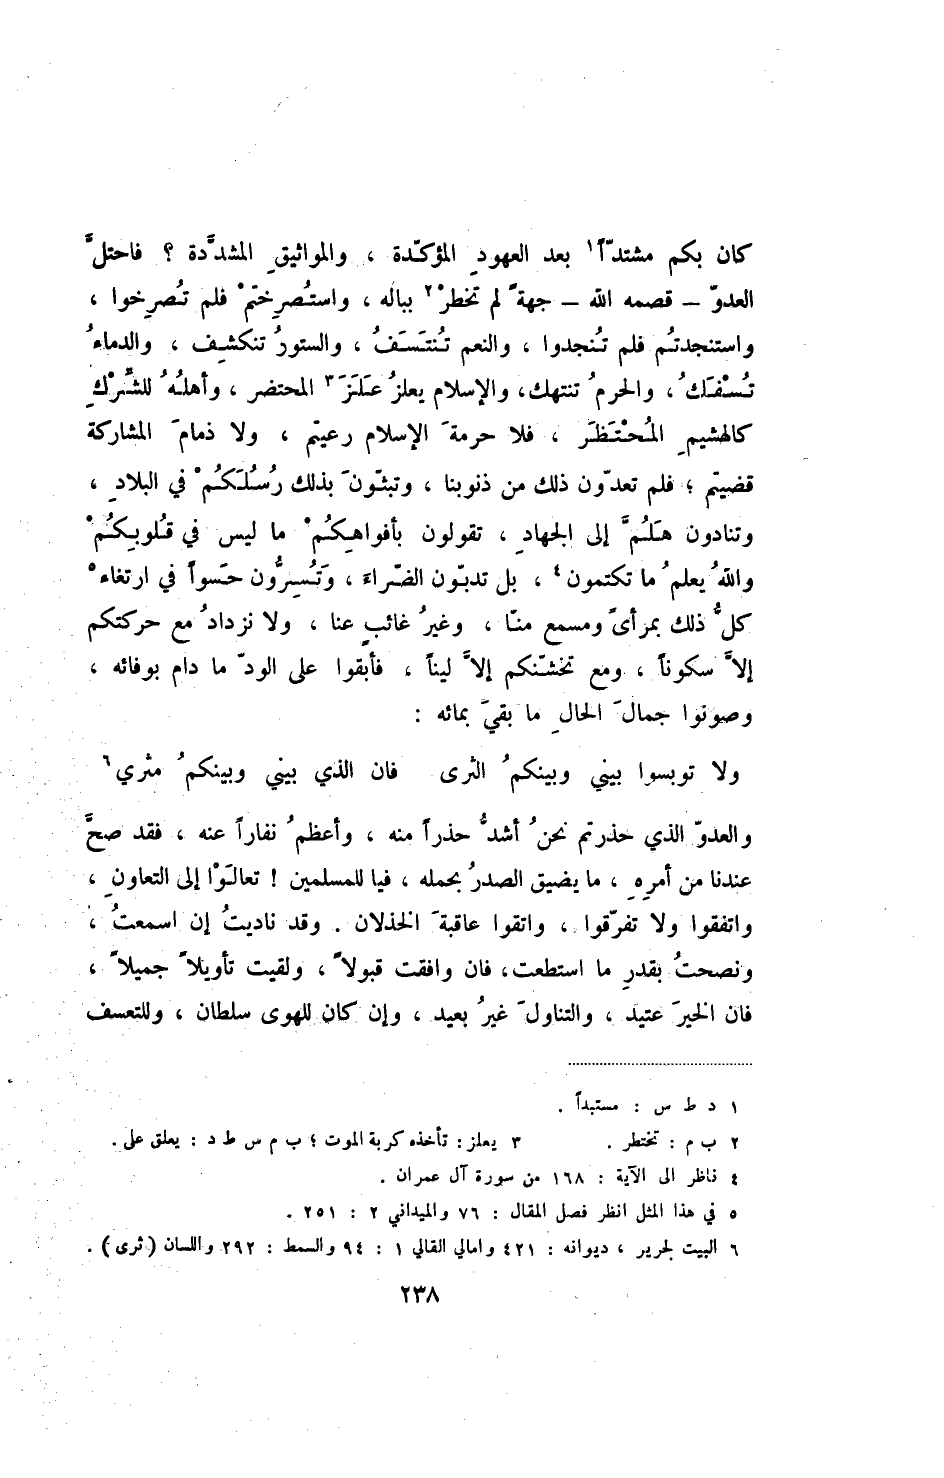 كان بكم مشتدّاً١ بعد العهودِ المؤكدّة ، والمواثيقِ المشدَّدة ؟ فاحتلَّ
العدوّ – قصمه الله – جهةً لم تخطرْ٢ بباله ، واستُصرِختمْ فلم تُصرِخوا ،
واستنجدتُم فلم تُنجدوا ، والنعم تُنتَسَفُ ، والستورُ تنكشِف ، والدماءُ
تُسْفَكُ ، والحرمُ تنتهك ، والإسلام يعلزُ عَلَزَ٣ المحتضر ، وأهلُهُ للشِّرْكِ
كالهشيمِ المُحْتَظَرَ ، فلا حرمةَ الإسلام رعيتم ، ولا ذمامَ المشاركة
قضيتم ؛ فلم تعدّون ذلك من ذنوبنا ، وتبثّونَ بذلك رُسُلَكُمْ في البلادِ ،
وتنادون هَلُمَّ إلى الجهادِ ، تقولون بأفواهِكُمْ ما ليس في قُلوبِكُمْ
واللهُ يعلمُ ما تكتمون٤ ، بل تدبّون الضّراءَ ، وَتُسِرُّون حَسواً في ارتغاء٥
كلُّ ذلك بمرأىً ومسمع منّا ، وغيرُ غائبٍ عنا ، ولا نزدادُ مع حركتكم
إلاَّ سكوناً ، ومع تخشّنكم إلاَّ ليناً ، فأبقوا على الودّ ما دام بوفائه ،
وصونوا جمالَ الحالِ ما بقيَ بمائه :
ولا توبسوا بيني وبينكمُ الثرى فان الذي بيني وبينكمُ مثري٦
والعدوّ الذي حذرتم نحنُ أشدُّ حذراً منه ، وأعظمُ نفاراً عنه ، فقد صحَّ
عندنا من أمرِهِ ، ما يضيق الصدرُ بحمله ، فيا للمسلمين ! تعالَوْا إلى التعاونِ ،
واتفقوا ولا تفرّقوا ، واتقوا عاقبةَ الخذلان . وقد ناديتُ إن اسمعتُ ،
ونصحتُ بقدرِ ما استطعت ، فان وافقت قبولاً ، ولقيت تأويلاً جميلاً ،
فان الخيرَ عتيد ، والتناولَ غيرُ بعيد ، وإن كان للهوى سلطان ، وللتعسف
١ د ط س : مستبداً .
٢ ب م : تختطر . ٣ يعلز : تأخذه كربة الموت ؛ ب م س ط د : يعلق على .
٤ ناظر الى الآية : ١٦٨ من سورة آل عمران .
٥ في هذا المثل انظر فصل المقال : ٧٦ والميداني ٢ : ٢٥١ .
٦ البيت لجرير ، ديوانه : ٤٢١ وامالي القالي ١ : ٩٤ والسمط : ٢٩٢ واللسان ( ثرى ) .
٢٣٨